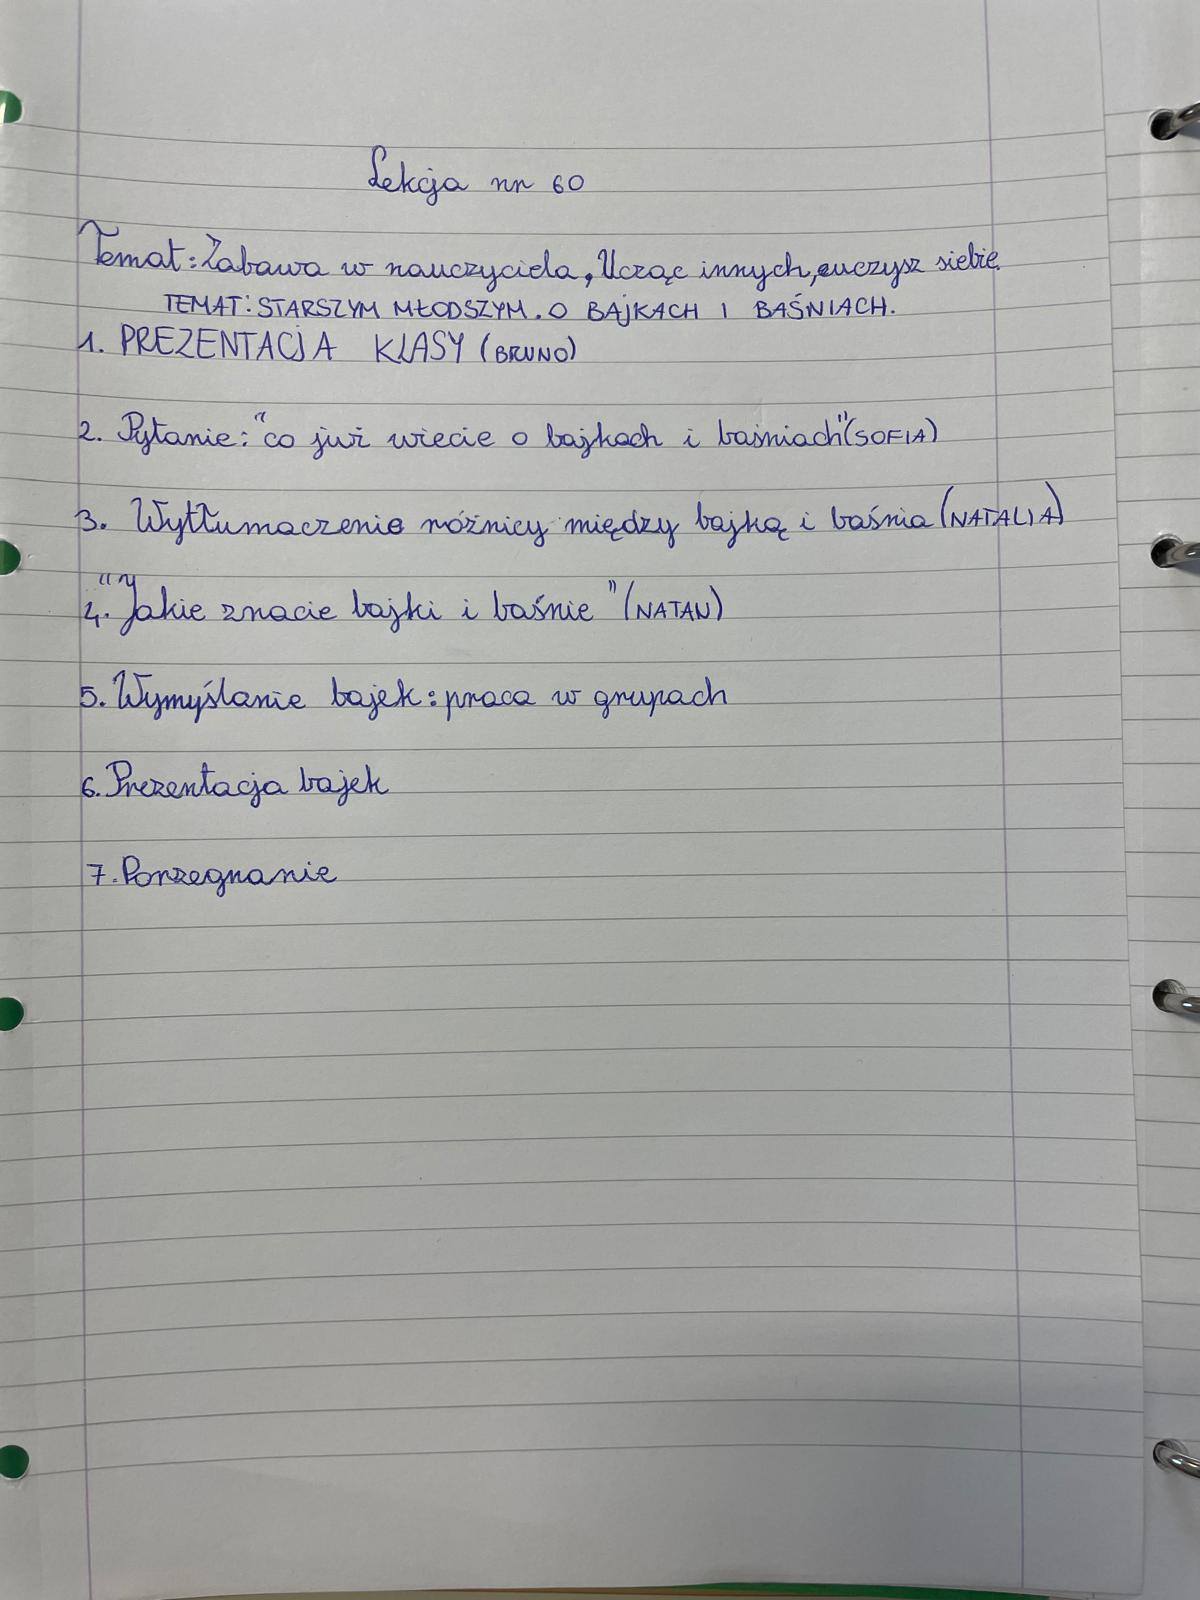 Lekcja nr 60
Temat: Zabawa w nauczyciela, Ucząc innych, uczysz siebie.
TEMAT: STARSZYM MŁODSZYM. O BAJKACH I BAŚNIACH.
1. PREZENTACJA KLASY (BRUNO)
2. Pytanie: "co już wiecie o bajkach i baśniach" (SOFIA)
3. Wytłumaczenie różnicy między bajką i baśnia (NATALIA)
4. "Jakie znacie bajki i baśnie" (NATAN)
5. Wymyślanie bajek: praca w grupach
6. Prezentacja bajek
7. Porzegnanie